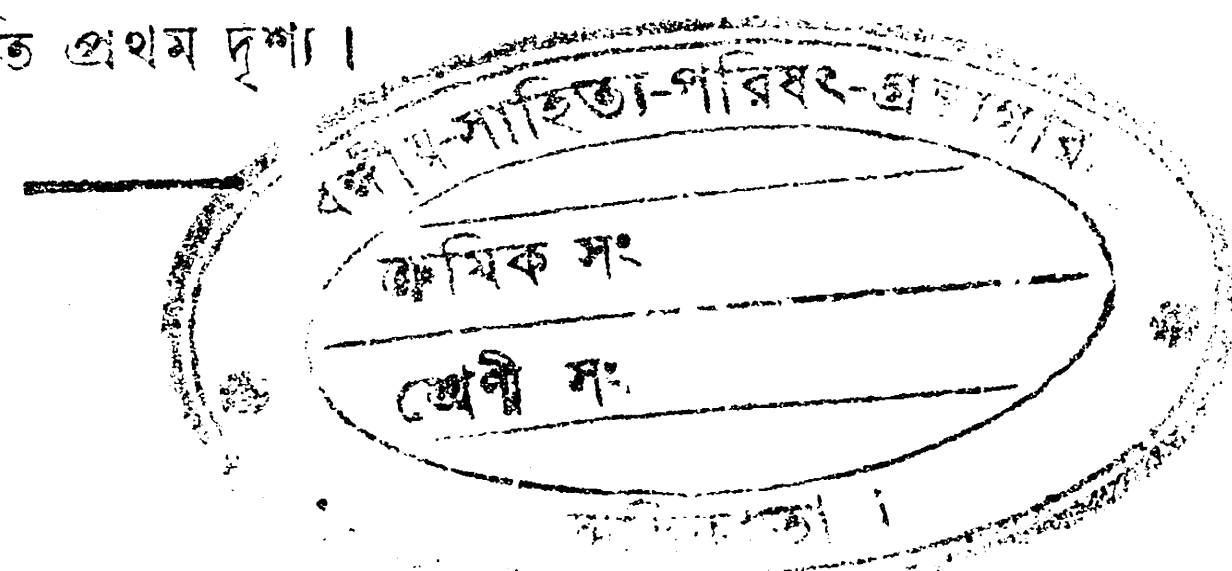 তি প্রথম দৃশ্য।
বঙ্গীয়-সাহিত্য-পরিষৎ-গ্রন্থাগার
ক্রমিক সং
শ্রেণী সং
কলিকাতা।